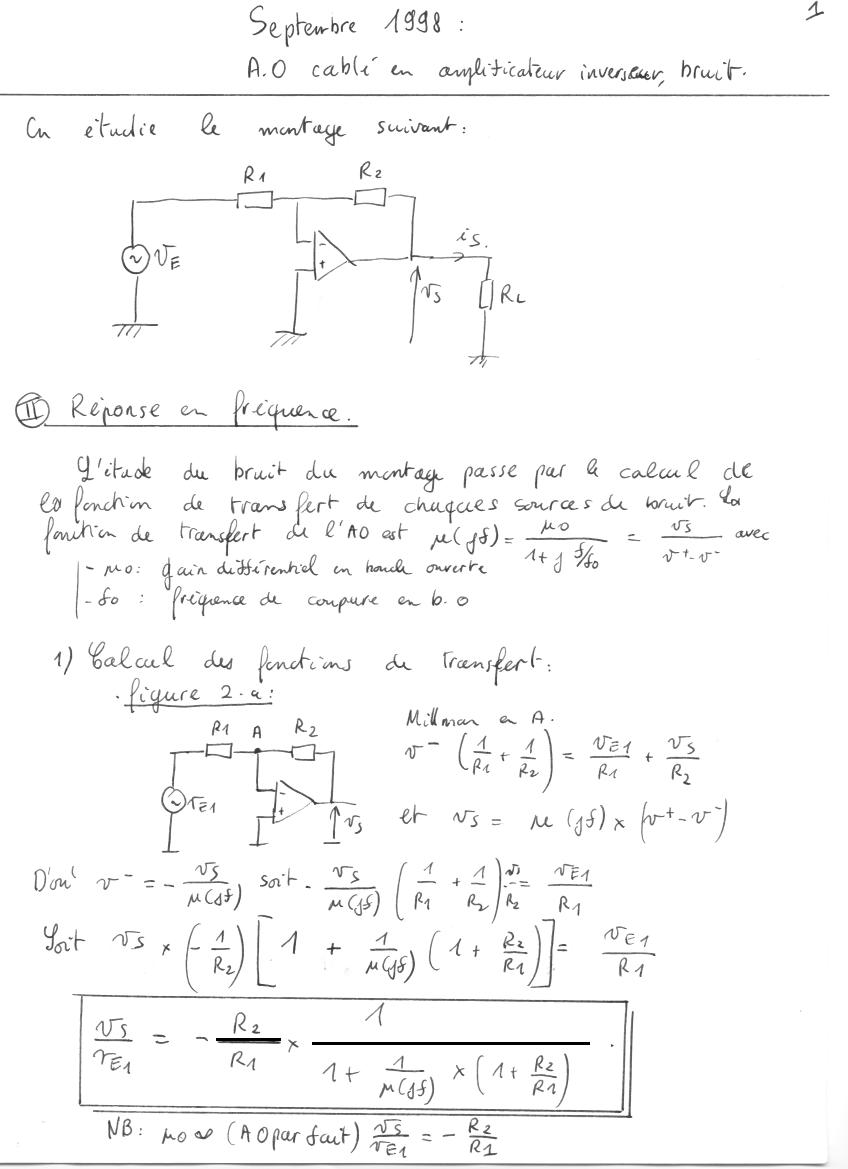 1
Septembre 1998 :
A.O cablé en amplificateur inverseur, bruit.
On étudie le montage suivant :
R1 R2
vE
- +
is.
vs
RL
II Réponse en fréquence.
L'étude du bruit du montage passe par le calcul de
la fonction de transfert de chaques sources de bruit. La
fonction de transfert de l'AO est μ(jf) = μo / (1 + j f/fo) = vs / (v+ - v-) avec
- μo : gain différentiel en boucle ouverte
- fo : fréquence de coupure en b.o
1) Calcul des fonctions de transfert :
. figure 2.a :
R1 A R2
vE1
- +
vs
Millman en A.
v- (1/R1 + 1/R2) = vE1/R1 + vs/R2
et vs = μ(jf) × (v+ - v-)
D'où v- = - vs/μ(jf) soit - vs/μ(jf) (1/R1 + 1/R2) - vs/R2 = vE1/R1
Soit vs × (- 1/R2) [1 + 1/μ(jf) (1 + R2/R1)] = vE1/R1
vs/vE1 = - R2/R1 × 1 / (1 + 1/μ(jf) × (1 + R2/R1)) .
NB : μo ∞ (AO parfait) vs/vE1 = - R2/R1